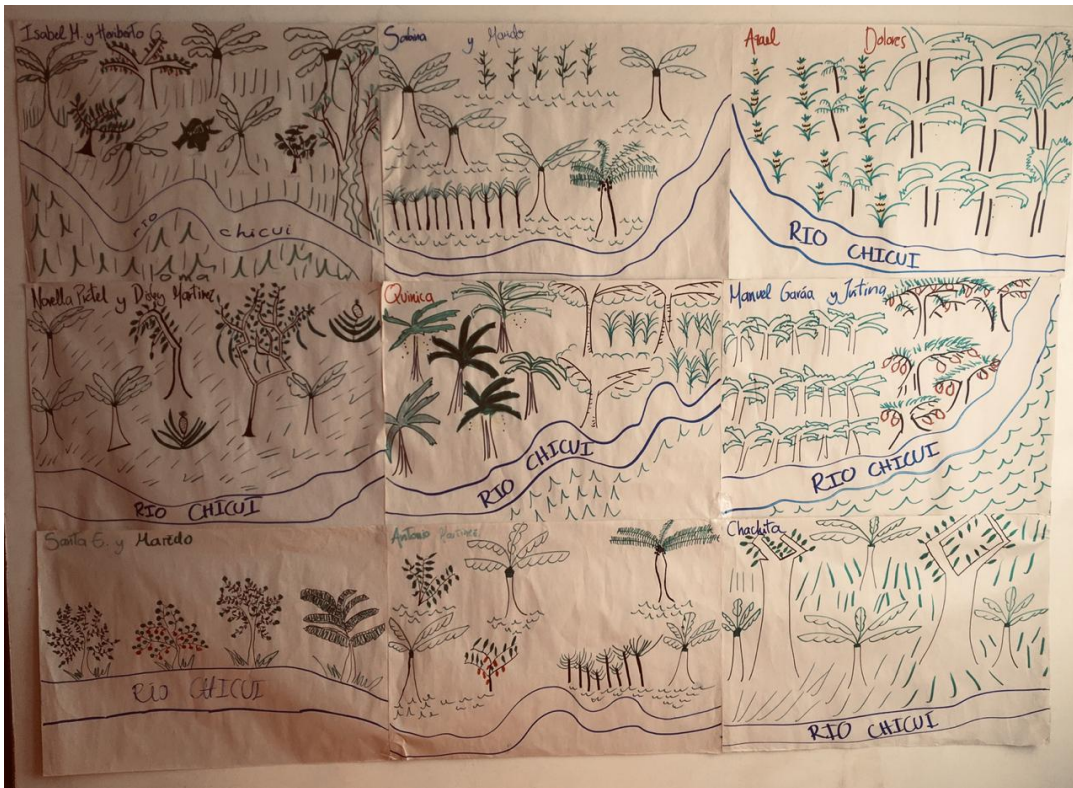 Isabel M. y Heriberto G.
rio chicui
loma
Sabina y Marido
Azael Dolores
RIO CHICUI
y
RIO CHICUI
Quinica
RIO CHICUI
Manuel García y
RIO CHICUI
Santa G. y Marido
RIO CHICUI
Antonio Martinez
Chachita
RIO CHICUI